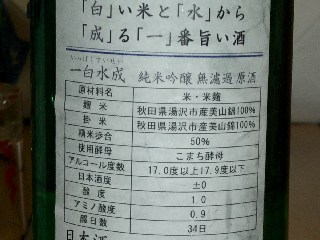 「白」い米と「水」から
「成」る「一」番旨い酒
いっぱくすいせい
一白水成 純米吟醸 無濾過原酒
原材料名 米・米麹
麹米 秋田県湯沢市産美山錦100%
掛米 秋田県湯沢市産美山錦100%
精米歩合 50%
使用酵母 こまち酵母
アルコール度数 17.0度以上17.9度以下
日本酒度 ±0
酸度 1.0
アミノ酸度 0.9
醪日数 34日
日本酒